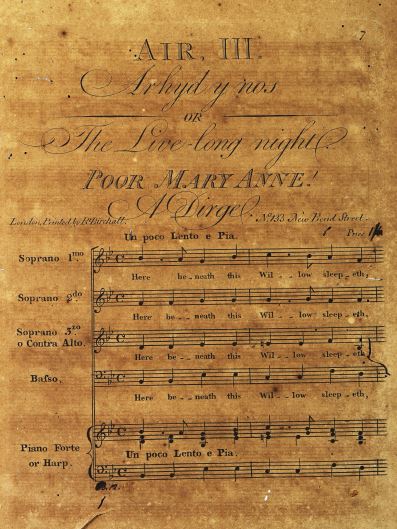 7
AIR, III.
Arhyd y nos
OR
The Live-long night.
POOR MARY ANNE!
A Dirge.
London, Printed by R. Birchall. No. 133 New Bond Street.
Price
Un poco Lento e Pia.
Soprano 1.mo
Here be_neath this Wil__low sleep_eth,
Soprano 2.do
Here be_neath this Wil__low sleep_eth,
Soprano 3.zo
o Contra Alto.
Here be_neath this Wil__low sleep_eth,
Basso,
Here be_neath this Wil__low sleep_eth,
Piano Forte
or Harp.
Un poco Lento e Pia.